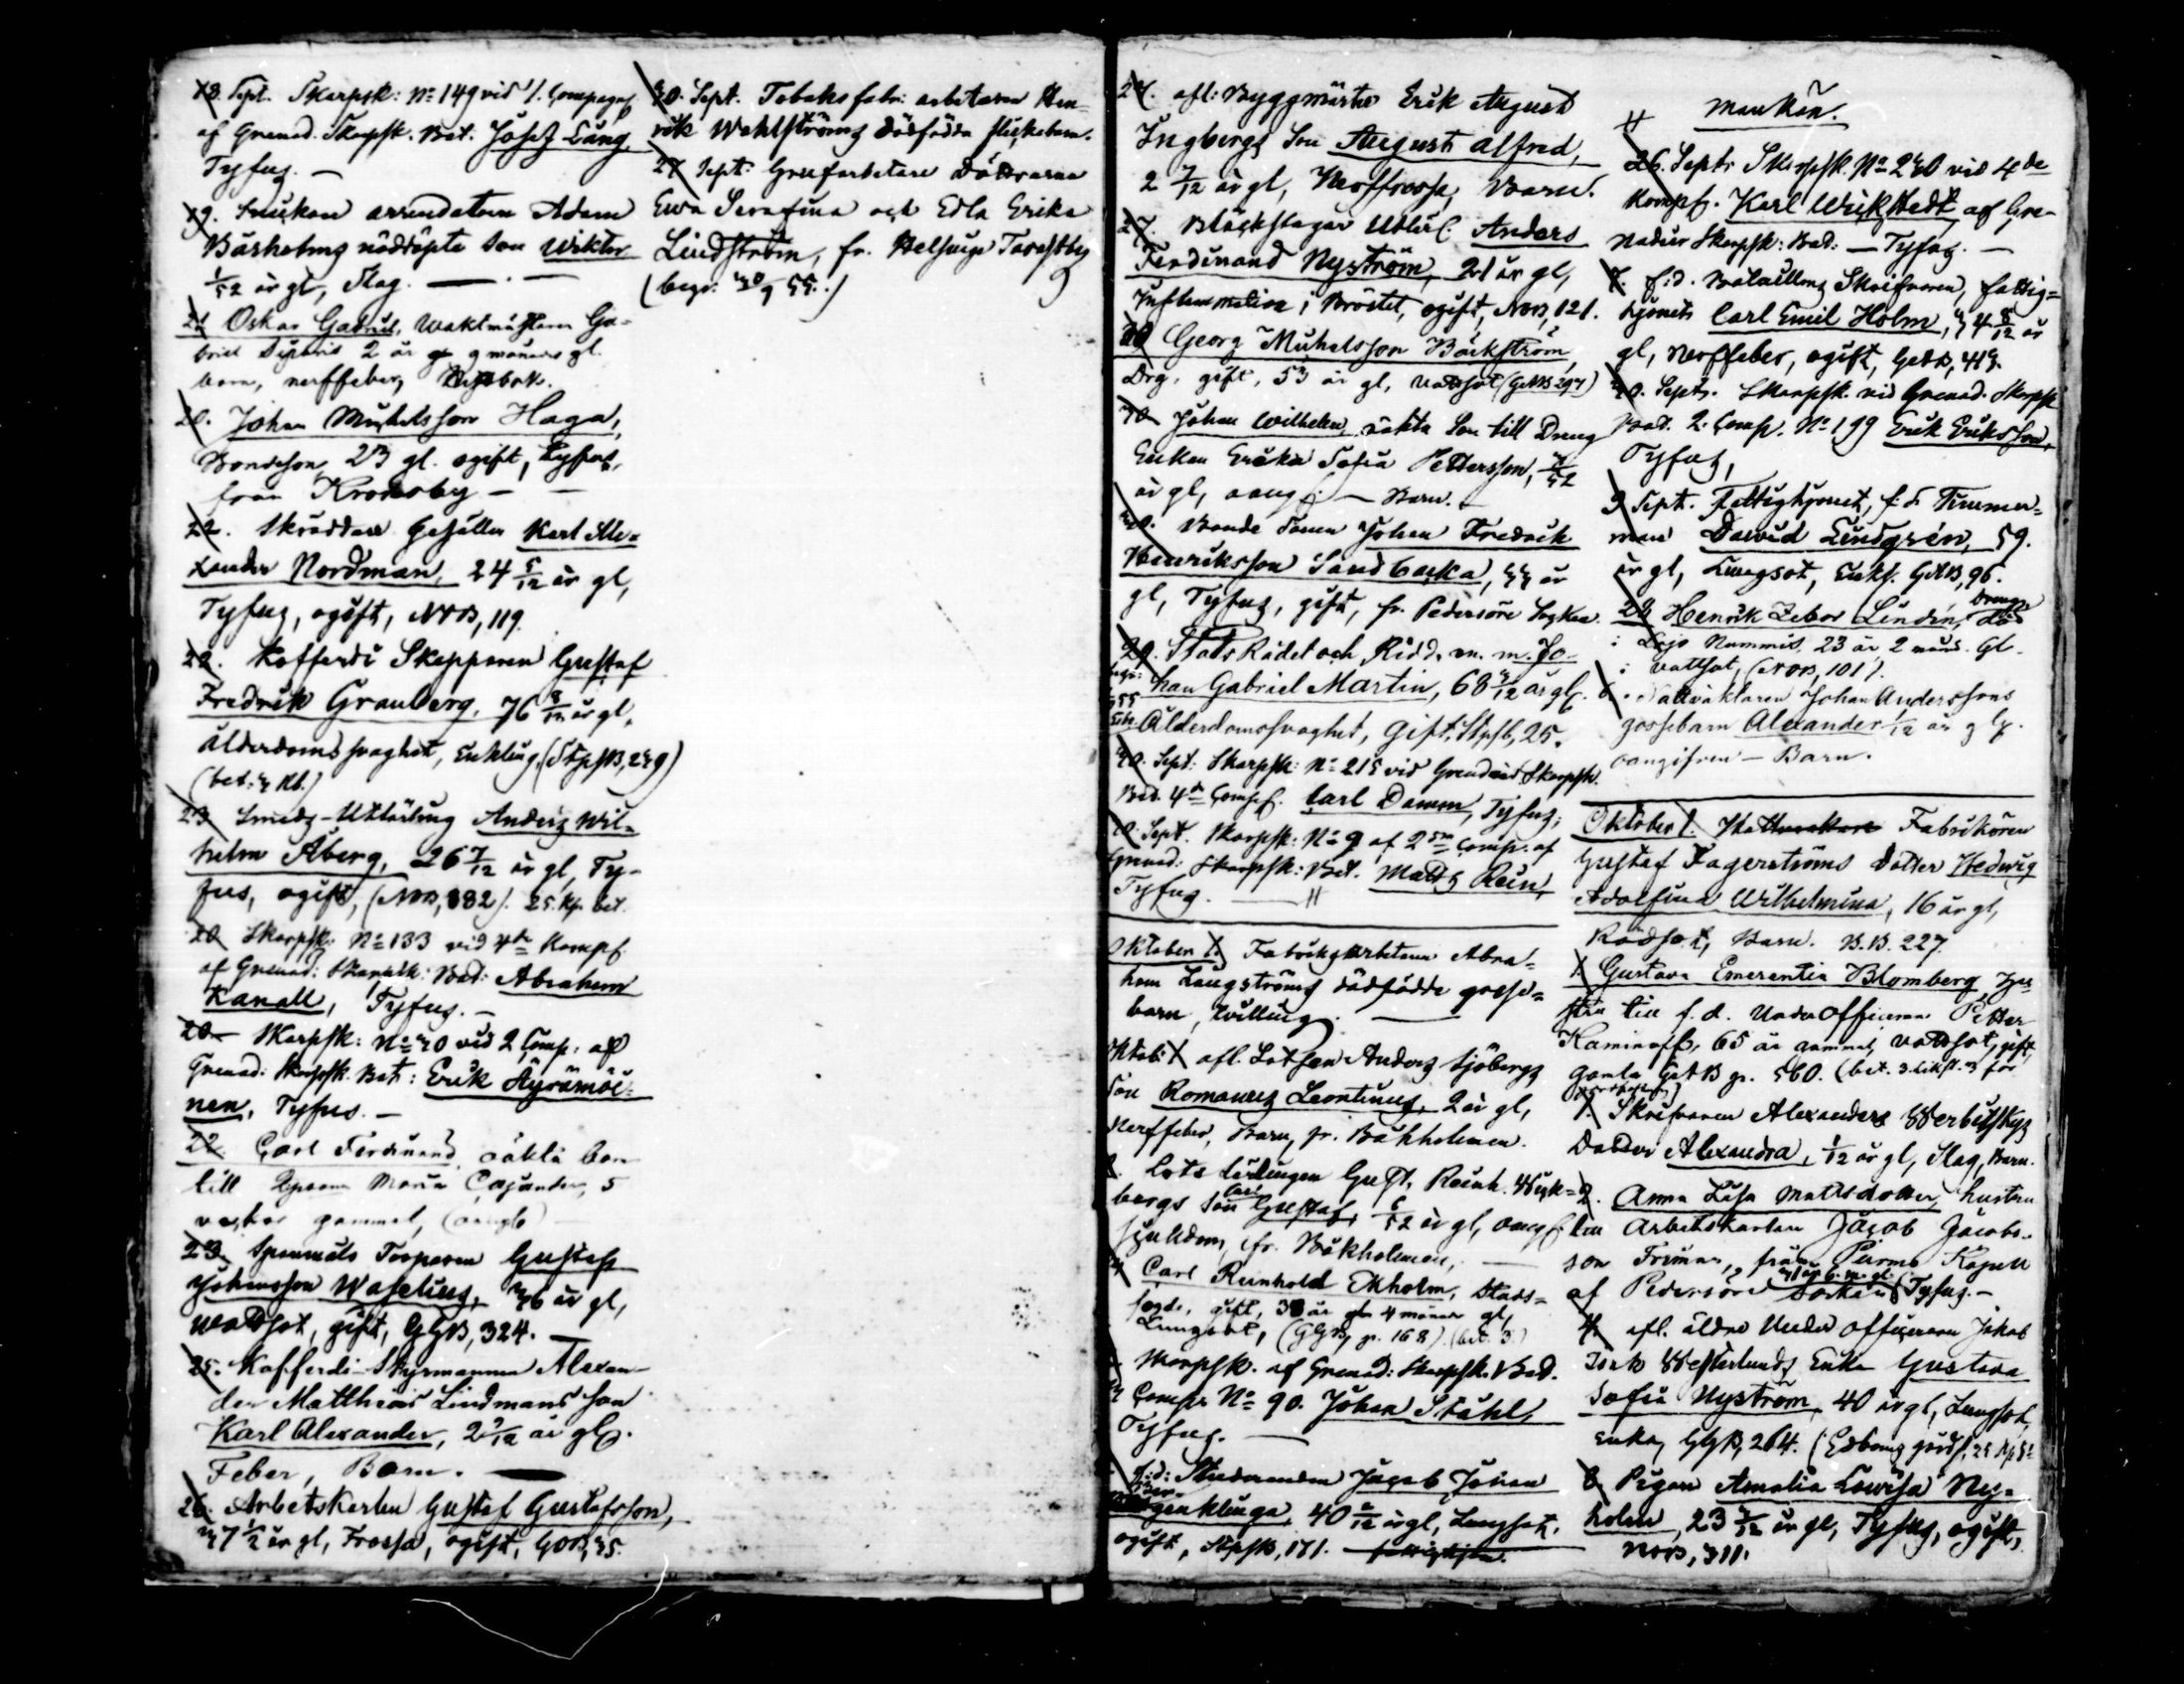 18. Sept. Skarpsk: No 149 vid 1. Compagn.
af Grenad. Skarpsk. Bat: Josef Lång
Tyfus. —
19. Snickare arrendatorn Adam
Bärholms nöddöpte Son Wiktor
1/52 år gl, Slag. — . —
21 Oskar Gabriel, Waktmästaren Ga-
briel 2 år 9 månad. gl.
barn, nerffeber,
20. Johan Michelsson Haga,
Bondeson 23 gl. ogift, Tyfus,
från Kronoby — —
22. Skräddare Gesällen Karl Ale-
xander Nordman, 24 5/12 år gl,
Tyfus, ogift, NNB, 119.
22. Kofferdi Skepparen Gustaf
Fredrik Granberg, 76 8/12 år gl,
ålderdomssvaghet, Enkling, (StpsB, 239)
(bet: 3 Rb.)
23 Smeds-Utlärling Anders Wil-
helm Åberg, 26 7/12 år gl, Ty-
fus, ogift, (NNB, 382). 25. Kp. bet.
20 Skarpsk: No 133 vid 4de Komp.
af Grenad: Skarpsk: Bat: Abraham
Kanall, Tyfus. —
20 — Skarpsk: No 30 vid 2 Comp. af
Grenad: Skarpsk. Bat: Erik Äyrämöi-
nen, Tyfus. —
22. Carl Ferdinand oäkta son
till Maria Cajander, 5
veckor gammal, (oangf)
23. Spennäls Torparen Gustaf
Johansson Waselius, 36 år gl,
Wattsot, gift, GGB, 324. —
25. Kofferdi-Styrmannen Alexan-
der Matthias Lindmans son
Karl Alexander, 2 2/12 år gl.
Feber, Barn. —
26. Arbetskarlen Gustaf Gustafsson,
37 1/2 år gl, Frossa, ogift, GOB, 35.
30. Sept. Tobaks fabr: arbetaren Hen-
rik Wahlströms dödfödda flickebarn.
27 Sept: Grufarbetare Döttrarna
Ewa Serafina och Edla Erika
Lindström, fr. Helsinge Tavastby
(begr: 30/9 55.)
24. afl: Byggmäster Erik August
Ingbergs Son August Alfred,
2 7/12 år gl, Nerffrossa, Barn.
27. Bläckslagar Utlärl: Anders
Ferdinand Nyström, 21 år gl,
Inflammation i Bröstet, ogift, NNB, 121.
20 Georg Michelsson Bäckström,
Drg. gift, 53 år gl, Vattsot (GNB 297)
30 Johan Wilhelm, oäkta Son till Dreng
Enkan Erika Sofia Pettersson, 7/52
år gl, oang: — Barn. —
20. Bonde Sonen Johan Fredrik
Henriksson Sandbacka, 33 år
gl, Tyfus, gift, fr. Pedersöre Socken.
29. Stats Rådet och Ridd. m. m. Jo-
han Gabriel Martin, 68 3/12 år gl.
Ålderdomssvaghet, Gift. Stpsb, 25.
30. Sept: Skarpsk: No 215 vid Grenad Skarpsk.
Bat. 4de Comp. Carl Damm, Tyfus;
20. Sept. Skarpsk: No 9 af 2dra Comp. af
Grenad: Skarpsk: Bat. Matts Rein,
Tyfus. — H
Oktober 1. Fabriksarbetaren Abra-
ham Långströms dödfödde gosse-
barn, Tvilling. —
Oktob: 1 afl. Lotsen Anders Sjöbergs
Son Romanus Leontinus, 2 år gl,
Nerffeber, Barn, fr. Båkholmen.
2. Lots Lärlingen Gust. Reinh. Wick-
bergs Son Carl Gustaf, 6/52 år gl, oang
sjukdom, fr. Båkholmen, —
Carl Reinhold Ekholm, Stads-
fogde, gift, 38 år 4 månad gl,
Lungsot, (GGB, p. 168). (bet. 3.)
Skarpsk. af Grenad: Skarpsk. Bat.
3 Comp. No 90. Johan Ståhl,
Tyfus. —
f:d: Studeranden Jacob Johan
genklinga, 40 2/12 år gl, Lungsot,
ogift, StpsB, 171.
H Mankön.
26. Septr Skarpsk. No 230 vid 4de
Komp. Karl Wickstedt af Gre-
nadier Skarpsk: Bat: — Tyfus. —
7. f:d. Bataillons Skrifvaren, fattig-
hjonet Carl Emil Holm, 34 8/12 år
gl, Nerffeber, ogift, GetB, 413.
30. Septr. Skarpsk. vid Grenad. Skarpsk
Bat. 2. Comp. No 199 Erik Eriksson,
Tyfus,
9 Sept. Fattighjonet, f:d. Timmer-
man David Lindgrén, 59.
år gl, Lungsot, Enkl. GNB, 96.
28 Henrik Zebor Lindén, Dreng död
i Lojo Nummis, 23 år 2 mån. Gl.
i Vattsot, (NNB, 101).
6. Nattväktaren Johan Anderssons
gossebarn Alexander 1/12 år gl.
oangifven — Barn.
Oktober 1. Fabrikören
Gustaf Fagerströms dotter Hedwig
Adolfina Wilhelmina, 16 år gl,
Rödsot, Barn. B.B. 227.
1. Gustava Emerentia Blomberg Hu-
stru till f. d. Under Officeren Petter
Kaminoff, 65 år gammal, Vattsot, gift,
gamla GetB p. 560. (bet. 3. likst. 3 för
1. Skrifvaren Alexanders Werbitskys
Dotter Alexandra, 1/12 år gl, Slag, Barn.
2. Anna Lisa Mattsdotter, hustru
till Arbetskarlen Jacob Jacobs-
son Frimar, från Purmo Kapell
af Pedersöre Socken, 31 år 6. m. gl. Tyfus. —
4. afl. äldre Under officeraren Jakob
Isak Westerlunds Enka Gustava
Sofia Nyström, 40 år gl, Lungsot,
Enka, GGB, 264.
8 Pigan Amalia Lowisa Ny-
holm, 23 3/12 år gl, Tyfus, ogift,
NNB, 311.